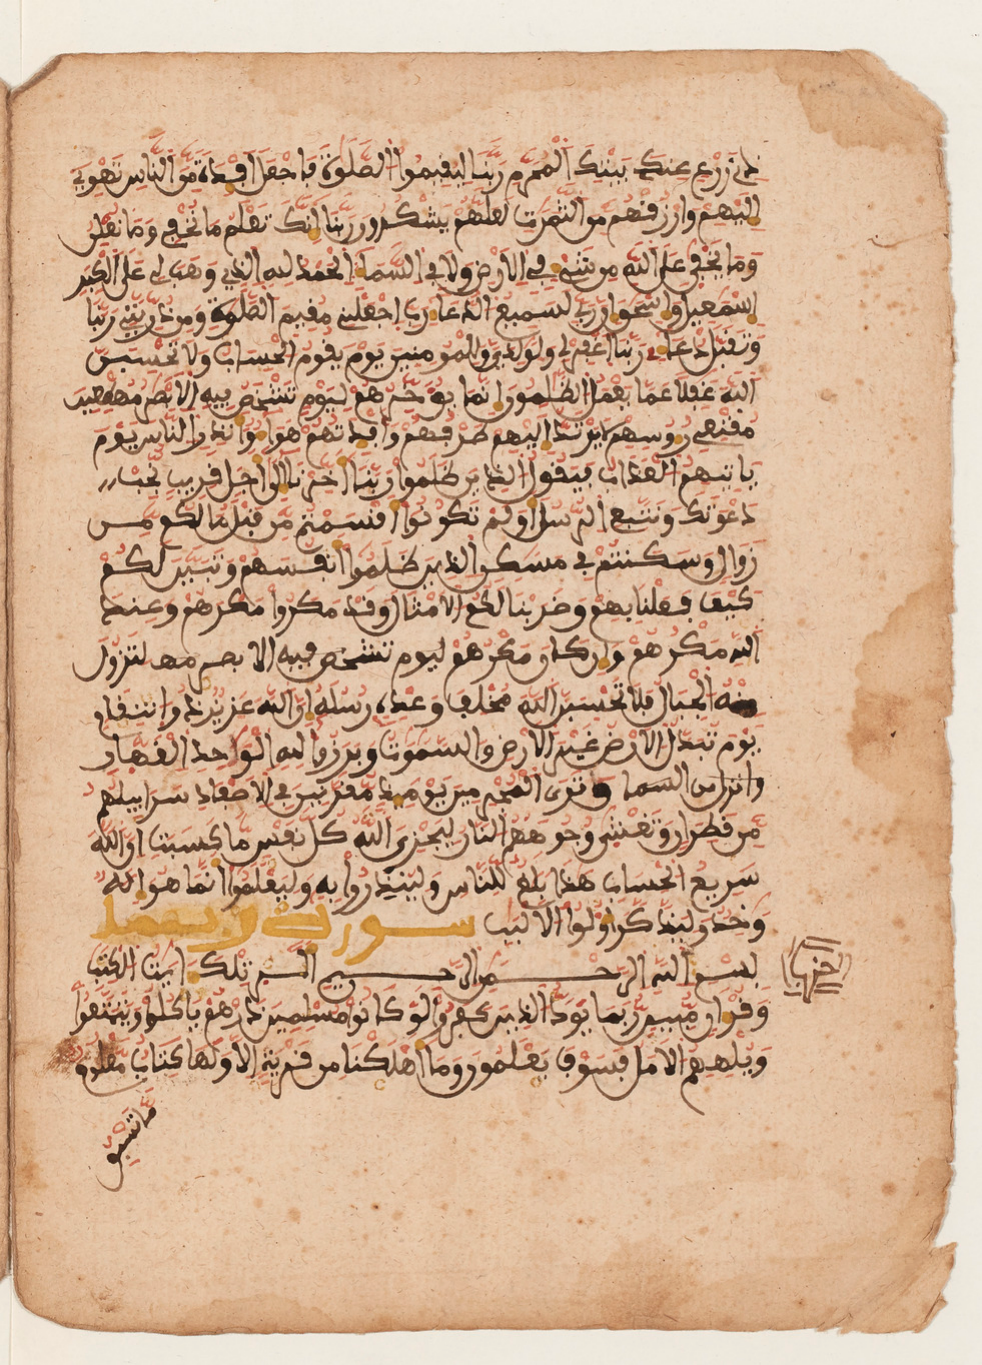 ذے زرع عند بيتك المحرم ربنا ليقيموا الصلوة فاجعل أفـدة من الناس تهوے
إليهم وارزقهم من الثمرت لعلهم يشكرون ربنا إنك تعلم ما نخفي وما نعلن
وما يخفى على الله من شيء في الارض ولا في السماء الحمد لله الذي وهب لي على الكبر
إسمعيل وإسحق إن ربي لسميع الدعاء رب اجعلني مقيم الصلوة ومن ذريتي ربنا
وتقبل دعاء ربنا اغفر لي ولولدي وللمومنين يوم يقوم الحساب ولا تحسبن
الله غفلا عما يعمل الظلمون إنما يوخرهم ليوم تشخص فيه الابصر مهطعين
مقنعي روسهم لا يرتد إليهم طرفهم وأفـدتهم هواء وأنذر الناس يوم
ياتيهم العذاب فيقول الذين ظلموا ربنا أخرنا إلى أجل قريب نجب
دعوتك ونتبع الرسل أولم تكونوا أقسمتم من قبل ما لكم من
زوال وسكنتم في مسكن الذين ظلموا أنفسهم وتبين لكم
كيف فعلنا بهم وضربنا لكم الامثال وقد مكروا مكرهم وعند
الله مكرهم وإن كان مكرهم ليوم تشخص فيه الابصر مهـ لتزول
منه الجبال فلا تحسبن الله مخلف وعده رسله إن الله عزيز ذو انتقام
يوم تبدل الارض غير الارض والسموت وبرزوا لله الواحد القهار
وانزل من السما وترى المجرمين يومئذ مقرنين في الاصفاد سرابيلهم
من قطران وتغشى وجوههم النار ليجزي الله كل نفس ما كسبت إن الله
سريع الحساب هذا بلغ للناس ولينذروا به وليعلموا أنما هو إله
وحد وليذكر أولوا الالبب سورة
بسم الله الرحمن الرحيم الر تلك ءايت الكتب
حزب
وقرءان مبين ربما يود الذين كفروا لو كانوا مسلمين ذرهم ياكلوا ويتمتعوا
ويلههم الامل فسوف يعلمون وما أهلكنا من قرية الا ولها كتاب معلوم
ما تسبق